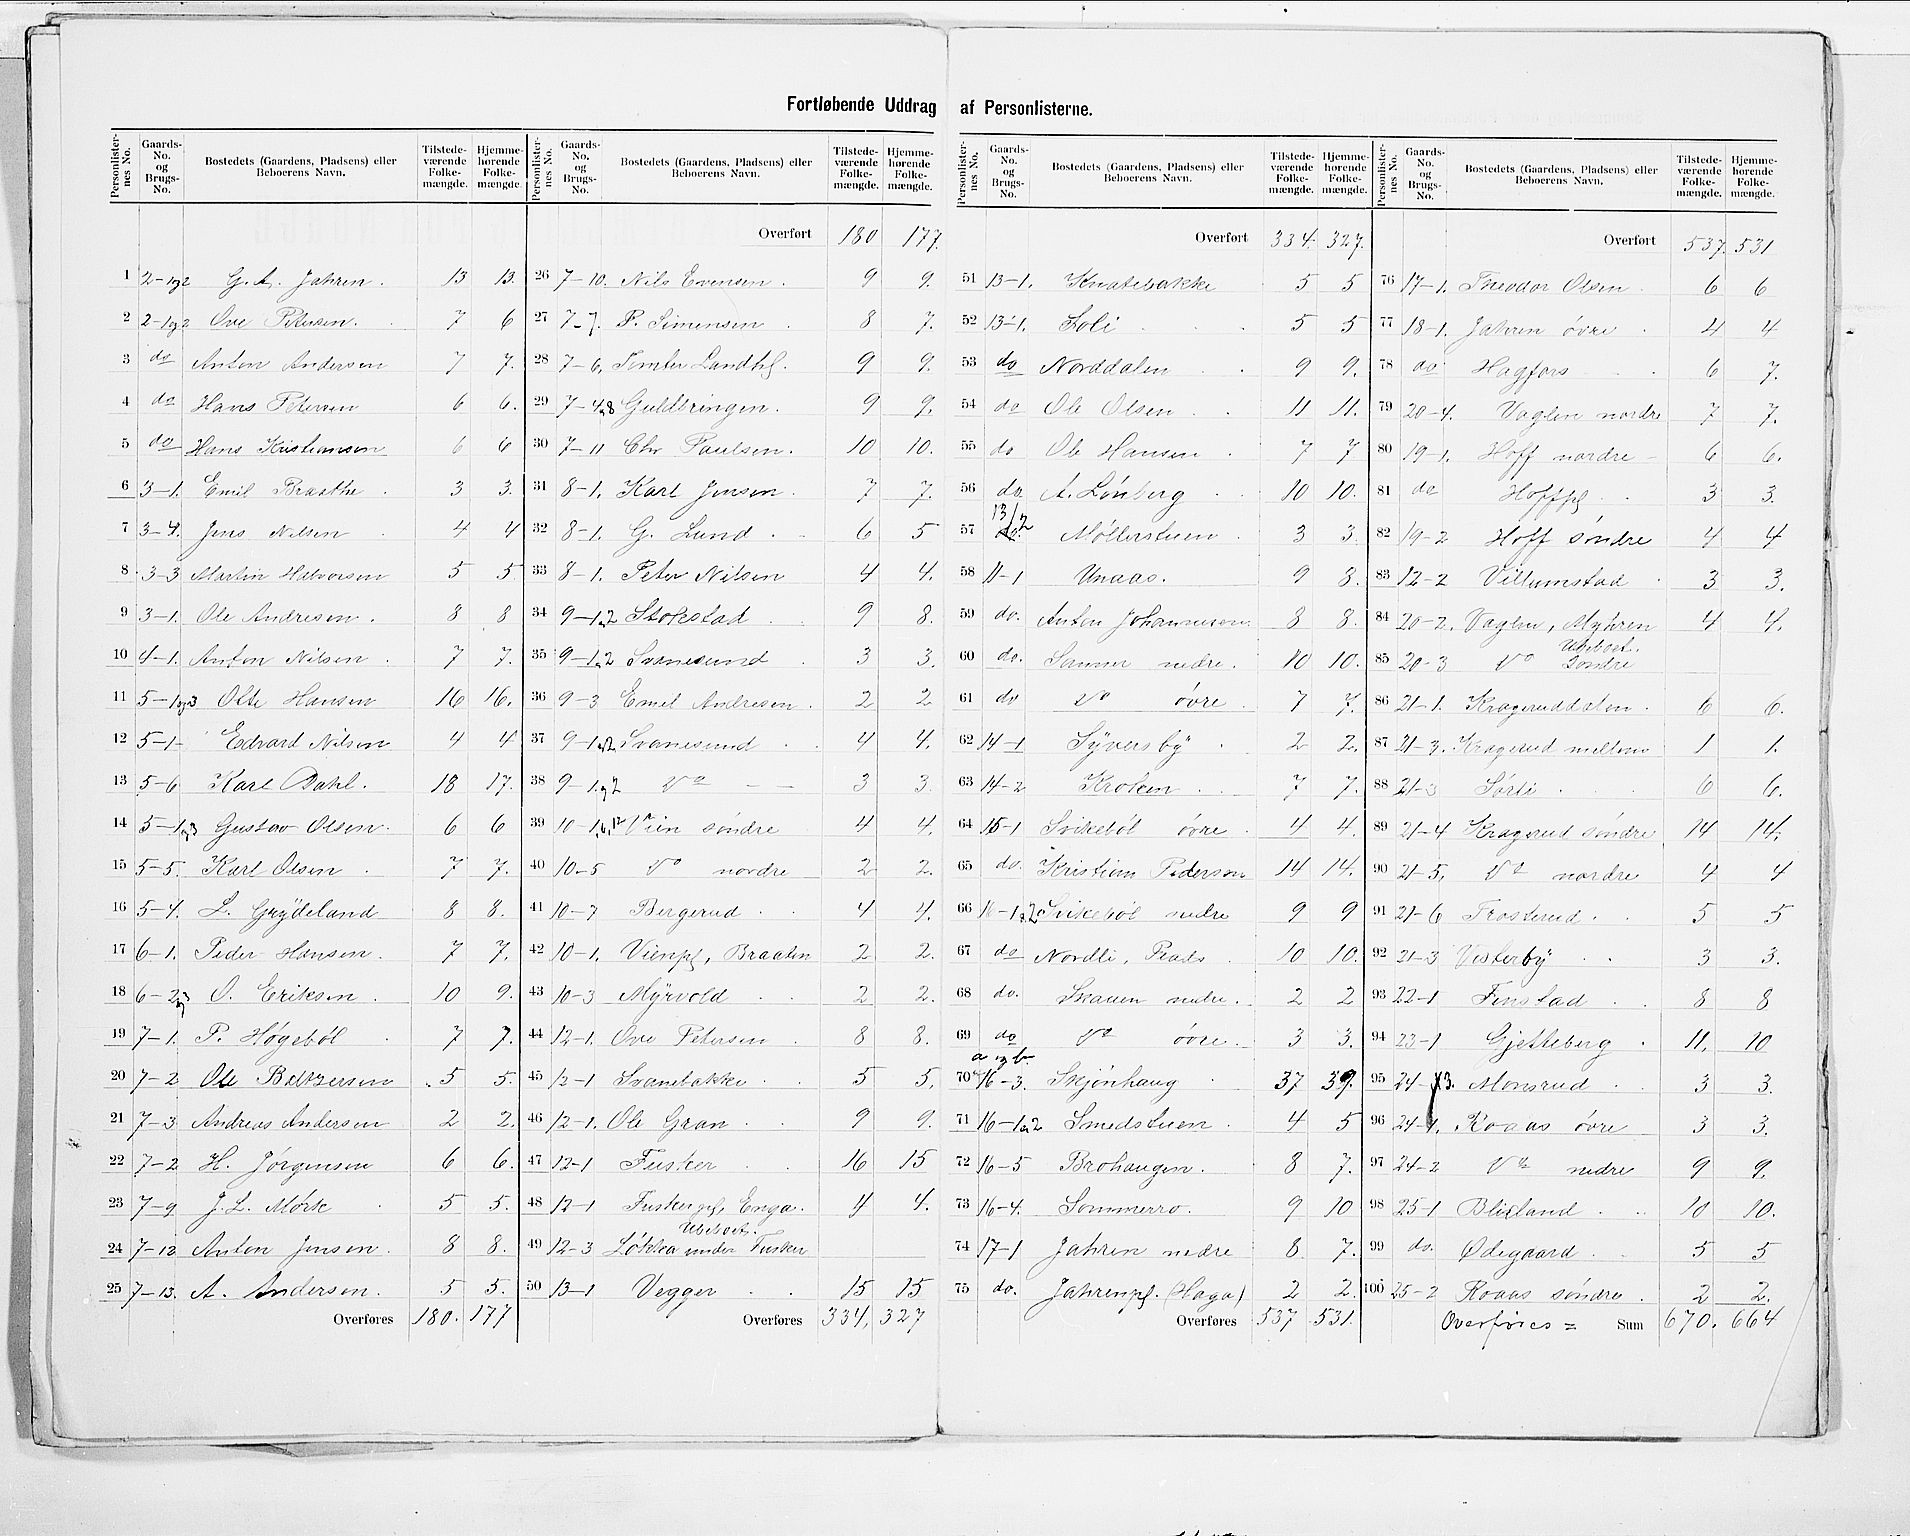 Fortløbende Uddrag af Personlisterne.
Personlister- nes No. | Gaards- No. og Brugs- No. | Bostedets (Gaardens, Pladsens) eller Beboerens Navn. | Tilstede- værende Folke- mængde. | Hjemme- hørende Folke- mængde.
1 2-1og2 G. A. Jahren. 13 13.
2 2-1og2 Ove Petersen. 7 6
3 do Anton Andersen 7 7.
4 do Hans Petersen 6 6.
5 do Hans Kristiansen 6 6
6 3-1. Emil Braathe. 3 3.
7 3-4. Jens Nilsen 4 4
8 3-3 Martin Halvorsen 5 5
9 3-1. Ole Andresen. 8 8
10 4-1. Anton Nilsen. 7 7.
11 5-1og3 Olte Hansen 16 16.
12 5-1- Edvard Nilsen 4 4
13 5-6 Karl Dahl. 18 17.
14 5-1og3 Gustav Olsen. 6 6
15 5-5. Karl Olsen. 7 7.
16 5-4. L. Grydeland 8 8.
17 6-1. Peder Hansen. 7 7.
18 6-2og3 O. Eriksen. 10 9.
19 7-1. P. Høgebøl 7 7.
20 7-2 Ole Beltzersen 5 5.
21 7-3 Andreas Andersen 2 2.
22 7-2 H. Jørgensen 6 6.
23 7-9 J. L. Mørk 5 5.
24 7-12 Anton Jensen. 8 8.
25 7-13. A. Andersen. 5 5.
Overføres 180. 177
Personlister- nes No. | Gaards- No. og Brugs- No. | Bostedets (Gaardens, Pladsens) eller Beboerens Navn. | Tilstede- værende Folke- mængde. | Hjemme- hørende Folke- mængde.
Overført 180 177.
26 7-10. Nils Evensen. 9 9.
27 7-7. P. Simensen. 8 7.
28 7-6, Tomter Landhl. 9 9.
29 7-4og8 Guldbringen. 9 9.
30 7-11 Chr Paulsen. 10 10.
31 8-1. Karl Jensen. 7 7.
32 8-1. G. Lund. 6 5
33 8-1. Peter Nilsen 4 4.
34 9-1og2 Stokstad 9 8.
35 9-1og2 Svanesund 3 3.
36 9-3 Emil Andresen. 2 2
37 9-1og2 Svanesund 4 4.
38 9-1og2 Do 3 3.
39 10-1,6,12 Vien søndre 4 4.
40 10-5 Do nordre 2 2.
41 10-7 Bergerud 4 4.
42 10-1. Vienpl, Braaten 2 2.
43 10-3 Myrvold 2 2.
44 12-1. Ove Petersen 8 8.
45 12-1 Svanebakke 5 5.
46 12-1. Ole Gran. 9 9.
47 12-1 Fusker 16 15
48 12-1 Fuskerpl, Enga. 4 4.
Ubeboet.
49 12-3 Løkka under Fusker
50 13-1 Vegger 15 15
Overføres 334, 327
Personlister- nes No. | Gaards- No. og Brugs- No. | Bostedets (Gaardens, Pladsens) eller Beboerens Navn. | Tilstede- værende Folke- mængde. | Hjemme- hørende Folke- mængde.
Overført 334. 327.
51 13-1. Knatebakke 5 5
52 13-1. Soli 5 5
53 do Norddalen 9 9.
54 do Ole Olsen 11 11.
55 do Ole Hansen. 7 7
56 do A. Lønberg 10 10.
57 13/2 Møllerstuen. 3 3.
58 11-1 Unaas. 9 8.
59 do. Anton Johannesen 8 8.
60 do. Sanner nedre. 10 10.
61 do Do øvre 7 7.
62 14-1 Syversby 2 2.
63 14-2 Kroken 7 7.
64 15-1 Svikebøl øvre 4 4.
65 do. Kristian Pederson 14 14.
66 16-1og2 Svikebøl nedre 9 9
67 do Nordli, Plads 10 10.
68 do. Skauen nedre. 2 2
69 do Do øvre. 3 3.
a og b
70 16-3. Skjønhaug 37 39.
71 16-1og2 Smedstuen. 4 5
72 16-5 Brohaugen. 8 7.
73 16-4. Sommerro. 9 10
74 17-1 Jahren nedre 8 7.
75 do. Jahrenpl. (Haga) 2 2.
Overføres 537 531.
Personlister- nes No. | Gaards- No. og Brugs- No. | Bostedets (Gaardens, Pladsens) eller Beboerens Navn. | Tilstede- værende Folke- mængde. | Hjemme- hørende Folke- mængde.
Overført 537. 531
76 17-1. Theodor Olsen 6 6
77 18-1. Jahren øvre 4 4
78 do Hagfors 6 7.
79 20-4. Vaglen nordre 7 7.
80 19-1. Hoff nordre 6 6.
81 do Hoffpl 3 3.
82 19-2 Hoff søndre 4 4
83 12-2 Villumstad 3 3.
84 20-2. Vaglen, Myhren 4 4.
Ubeboet.
85 20-3 Do Søndre
86 21-1. Krageruddalen. 6 6.
87 21-3. Kragerud mellem 1 1.
88 21-3 Sørli 6 6.
89 21-4 Kragerud søndre 14 14.
90 21-5, Do nordre 4 4
91 21-6 Frosterud 5 5
92 21-3 Vesterby 3 3.
93 22-1 Finstad 8 8
94 23-1 Gjetteberg 11. 10
95 24-3. Monsrud 3 3.
96 24-1. Roaas øvre 3 3.
97 24-2 Do nedre 9 9.
98 25-1 Blixland 10 10.
99 do. Ødegaard. 5 5
100 25-2 Roaas søndre. 2 2.
Overføres = Sum 670. 664